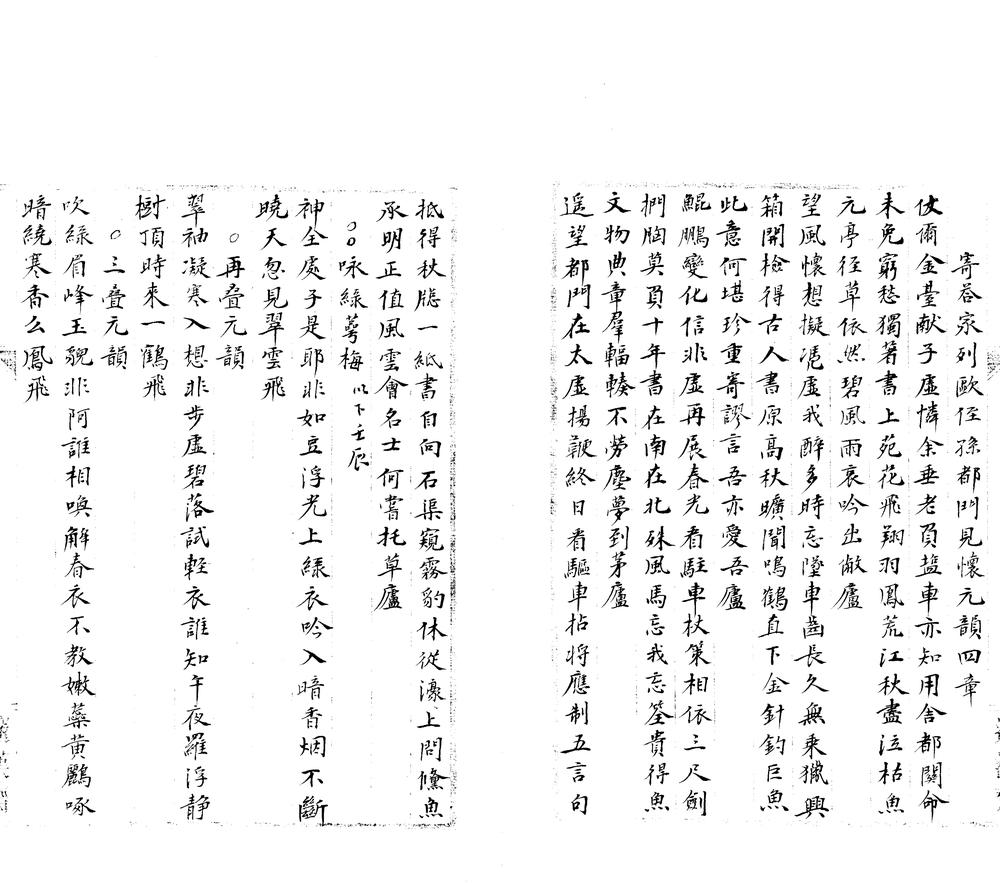 寄荅家列歐侄孫都門見懷元韻四章
仗爾金臺献子虛憐余垂老負盐車亦知用舍都關命
未免窮愁獨著書上苑花飛翔羽鳳荒江秋盡泣枯魚
元亭徑草依然碧風雨哀吟出敝廬
望風懷想擬凴虛我醉多時忘墜車齒長久無乘獵興
箱開檢得古人書原高秋曠聞鳴鶴直下金針釣巨魚
此意何堪珍重寄謬言吾亦愛吾廬
鯤鵬變化信非虛再展春光看駐車杖策相依三尺劍
捫胸莫負十年書在南在北殊風馬忘我忘筌貴得魚
文物典章羣輻輳不勞塵夢到茅廬
遥望都門在太虛揚鞭終日看驅車拈將應制五言句
抵得秋牕一紙書自向石渠窺霧豹休從濠上問儵魚
承明正值風雲會名士何嘗托草廬
○○咏綠萼梅以下壬辰
神全處子是耶非如豆浮光上緑衣吟入暗香烟不斷
曉天忽見翠雲飛
○再叠元韻
翠袖凝寒入想非步虛碧落試輕衣誰知午夜羅浮静
樹頂時來一鶴飛
○三叠元韻
吹緑眉峰玉貌非阿誰相喚解春衣不教嫩蘂黄鸝啄
暗繞寒香么鳳飛